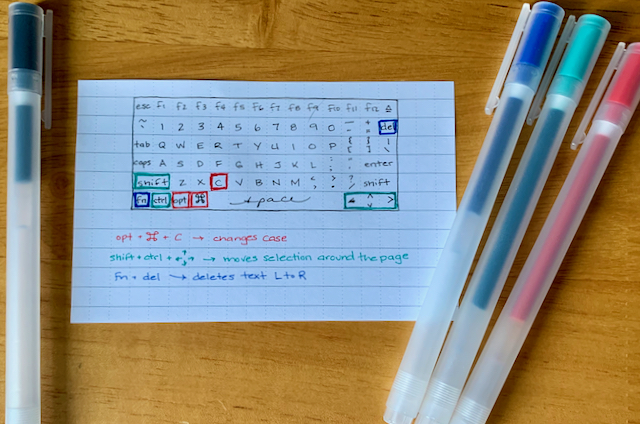 esc f1 f2 f3 f4 f5 f6 f7 f8 f9 f10 f11 f12 ≙
~ 1 2 3 4 5 6 7 8 9 0 - + = del
tab Q W E R T Y U I O P { [ } ] | \
caps A S D F G H J K L : ; enter
shift Z X C V B N M < , > . ? / shift
fn ctrl opt ⌘ space < ^ v >
opt + ⌘ + C → changes case
shift + ctrl + → moves selection around the page
Fn + del → deletes text L to R